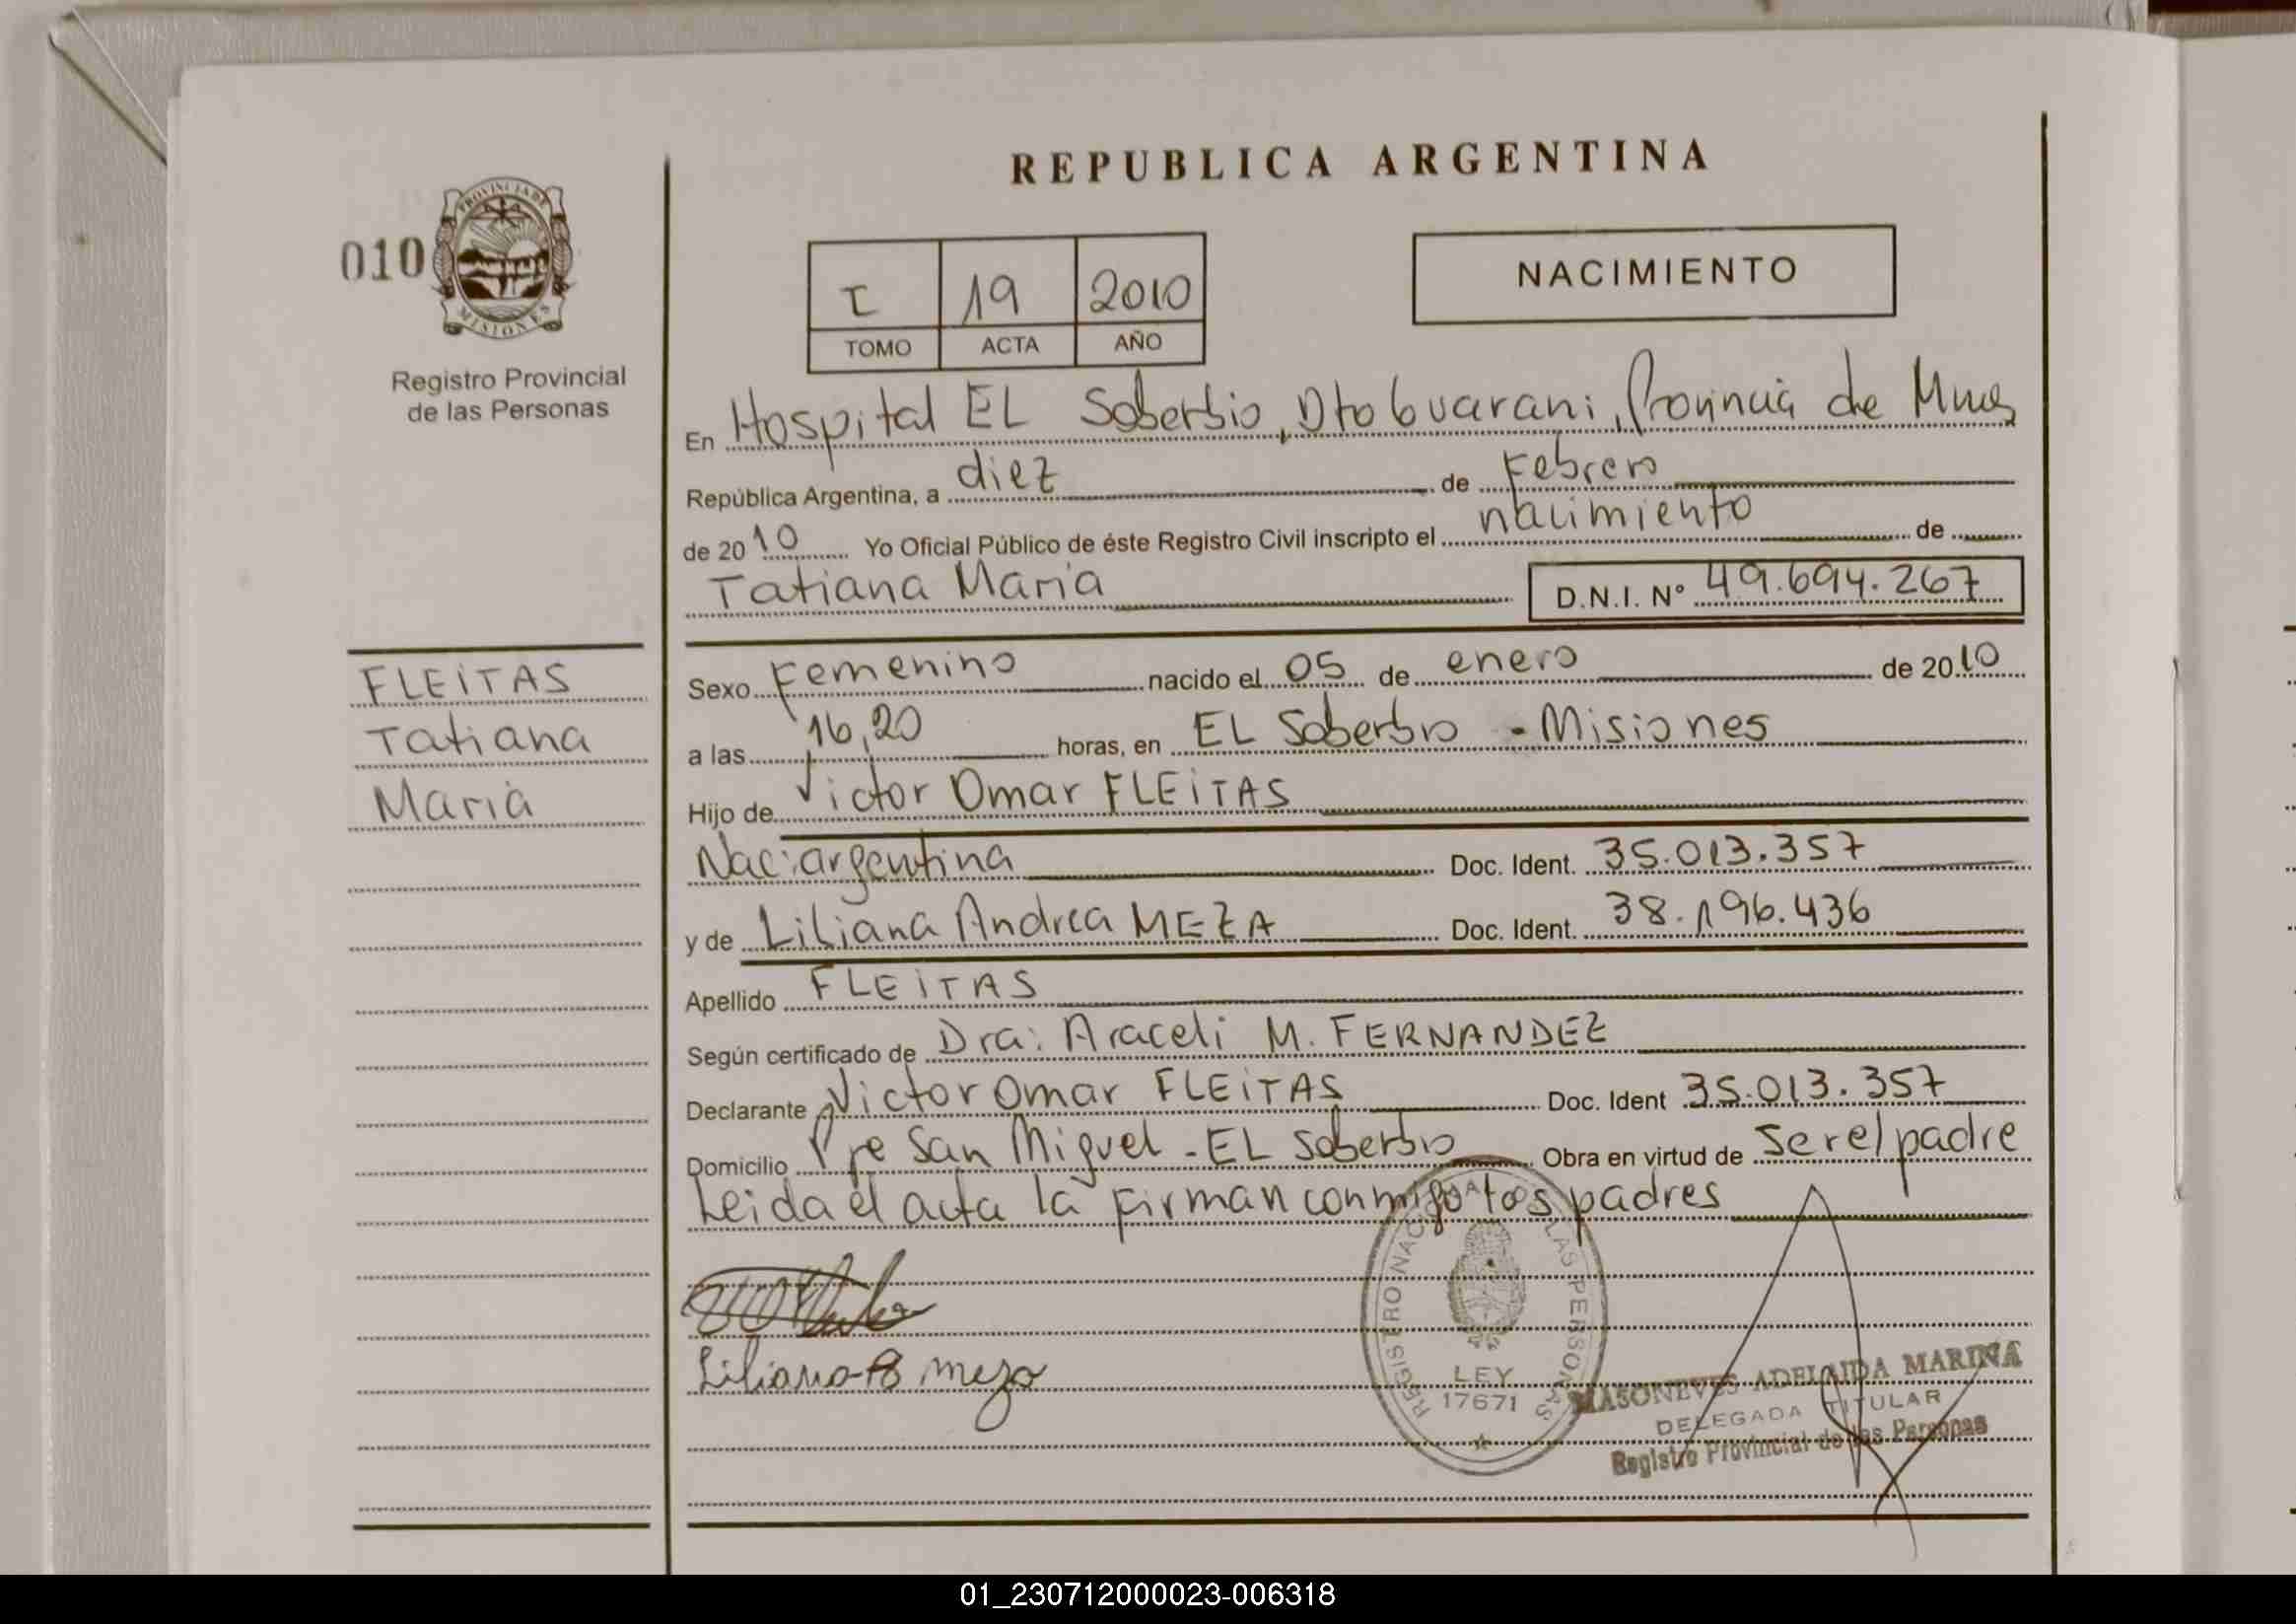 REPUBLICA ARGENTINA
010
PROVINCIA DE
MISIONES
Registro Provincial
de las Personas
I 19 2010
TOMO ACTA AÑO
NACIMIENTO
En Hospital EL Soberbio, Dto Guarani, Provincia de Mnes
República Argentina, a diez de Febrero
de 2010 Yo Oficial Público de éste Registro Civil inscripto el nacimiento de
Tatiana Maria D.N.I. Nº 49.694.267
FLEITAS
Tatiana
Maria
Sexo Femenino nacido el 05 de enero de 2010
a las 16,20 horas, en EL Soberbio - Misiones
Hijo de Victor Omar FLEITAS
Nac: argentina Doc. Ident. 35.013.357
y de Liliana Andrea MEZA Doc. Ident. 38.196.436
Apellido FLEITAS
Según certificado de Dra: Araceli M. FERNANDEZ
Declarante Victor Omar FLEITAS Doc. Ident 35.013.357
Domicilio Pje San Miguel - EL Soberbio Obra en virtud de ser el padre
Leida el acta la firman conmigo los padres
REGISTRO NAC LAS PERSONAS
LEY
17671
Liliana meza
MASONEVES ADELAIDA MARINA
DELEGADA TITULAR
Registro Provincial de las Personas
01_230712000023-006318